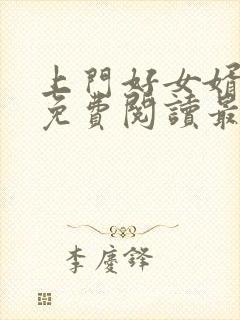 上門好女婿
免費閱讀最
李慶鋒